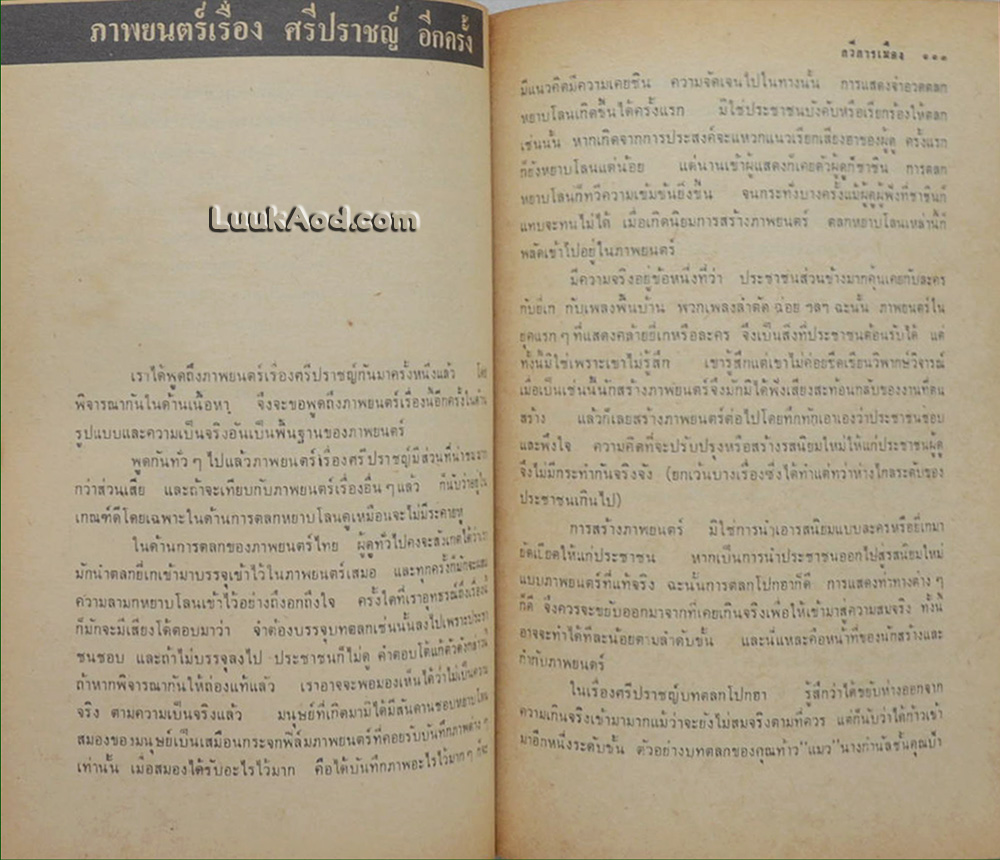 ภาพยนตร์เรื่อง ศรีปราชญ์ อีกครั้ง
LuukAod.com
เราได้พูดถึงภาพยนตร์เรื่องศรีปราชญ์กันมาครั้งหนึ่งแล้ว โดย
พิจารณากันในด้านเนื้อหา จึงจะขอพูดถึงภาพยนตร์เรื่องนี้อีกครั้งในด้าน
รูปแบบและความเป็นจริงอันเป็นพื้นฐานของภาพยนตร์
พูดกันทั่วๆ ไปแล้วภาพยนตร์เรื่องศรีปราชญ์มีส่วนที่น่าชมมาก
กว่าส่วนเสีย และถ้าจะเทียบกับภาพยนตร์เรื่องอื่นๆ แล้ว ก็นับว่าอยู่ใน
เกณฑ์ดีโดยเฉพาะในด้านการตลกหยาบโลนดูเหมือนจะไม่มีระคายหู
ในด้านการตลกของภาพยนตร์ไทย ผู้ดูทั่วไปคงจะสังเกตได้ว่า
มักนำตลกยี่เกเข้ามาบรรจุเข้าไว้ในภาพยนตร์เสมอ และทุกครั้งก็มักจะ
ความลามกหยาบโลนเข้าไว้อย่างถึงอกถึงใจ ครั้งใดที่เราอุทธรณ์ถึงเรื่องนี้
ก็มักจะมีเสียงโต้ตอบมาว่า จำต้องบรรจุบทตลกเช่นนั้นลงไปเพราะประชา
ชนชอบ และถ้าไม่บรรจุลงไป ประชาชนก็ไม่ดู คำตอบโต้แก้ตัวดังกล่าวนี้
ถ้าหากพิจารณากันให้ถ่องแท้แล้ว เราอาจจะพอมองเห็นได้ว่าไม่เป็นความ
จริง ตามความเป็นจริงแล้ว มนุษย์ที่เกิดมามิได้มีสันดานชอบหยาบโลน
สมองของมนุษย์เป็นเสมือนกระจกฟิล์มภาพยนตร์ที่คอยรับบันทึกภาพต่างๆ
เท่านั้น เมื่อสมองได้รับอะไรไว้มาก คือได้บันทึกภาพอะไรไว้มากๆ ก็จะ
กวีการเมือง ๑๑๑
มีแนวคิดมีความเคยชิน ความจัดเจนไปในทางนั้น การแสดงจำอวดตลก
หยาบโลนเกิดขึ้นได้ครั้งแรก มิใช่ประชาชนบังคับหรือเรียกร้องให้ตลก
เช่นนั้น หากเกิดจากการประสงค์จะแหวกแนวเรียกเสียงฮาของผู้ดู ครั้งแรก
ก็ยังหยาบโลนแต่น้อย แต่นานเข้าผู้แสดงก็เคยตัวผู้ดูก็ชาชิน การตลก
หยาบโลนก็ทวีความเข้มข้นยิ่งขึ้น จนกระทั่งบางครั้งแม้ผู้ดูผู้ฟังที่ชาชินก็
แทบจะทนไม่ได้ เมื่อเกิดนิยมการสร้างภาพยนตร์ ตลกหยาบโลนเหล่านี้ก็
พลัดเข้าไปอยู่ในภาพยนตร์
มีความจริงอยู่ข้อหนึ่งที่ว่า ประชาชนส่วนข้างมากคุ้นเคยกับละคร
กับยี่เก กับเพลงพื้นบ้าน พวกเพลงลำตัด ฉ่อย ฯลฯ ฉะนั้น ภาพยนตร์ใน
ยุคแรกๆ ที่แสดงคล้ายยี่เกหรือละคร จึงเป็นสิ่งที่ประชาชนต้อนรับได้ แต่
ทั้งนี้มิใช่เพราะเขาไม่รู้สึก เขารู้สึกแต่เขาไม่ค่อยขีดเขียนวิพากษ์วิจารณ์
เมื่อเป็นเช่นนี้นักสร้างภาพยนตร์จึงมักมิได้ฟังเสียงสะท้อนกลับของงานที่ตน
สร้าง แล้วก็เลยสร้างภาพยนตร์ต่อไปโดยทึกทักเอาเองว่าประชาชนชอบ
และพึงใจ ความคิดที่จะปรับปรุงหรือสร้างรสนิยมใหม่ให้แก่ประชาชนผู้ดู
จึงไม่มีกระทำกันจริงจัง (ยกเว้นบางเรื่องซึ่งได้ทำแต่ทว่าห่างไกลระดับของ
ประชาชนเกินไป)
การสร้างภาพยนตร์ มิใช่การนำเอารสนิยมแบบละครหรือยี่เกมา
ยัดเยียดให้แก่ประชาชน หากเป็นการนำประชาชนออกไปสู่รสนิยมใหม่
แบบภาพยนตร์ที่แท้จริง ฉะนั้นการตลกโปกฮาก็ดี การแสดงท่าทางต่างๆ
ก็ดี จึงควรจะขยับออกมาจากที่เคยเกินจริงเพื่อให้เข้ามาสู่ความสมจริง ทั้งนี้
อาจจะทำได้ทีละน้อยตามลำดับขั้น และนี่แหละคือหน้าที่ของนักสร้างและ
กำกับภาพยนตร์
ในเรื่องศรีปราชญ์บทตลกโปกฮา รู้สึกว่าได้ขยับห่างออกจาก
ความเกินจริงเข้ามามากแม้ว่าจะยังไม่สมจริงตามที่ควร แต่ก็นับว่าได้ก้าวเข้า
มาอีกหนึ่งระดับขั้น ตัวอย่างบทตลกของคุณท้าว "แมว" นางกำนัลชั้นคุณป้า